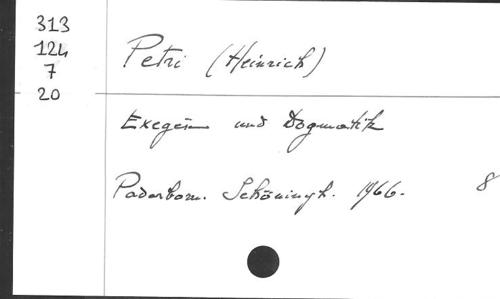 313
124
7
20
Petri (Heinrich)
Exegese und Dogmatik
Paderborn. Schöningh. 1966. 8